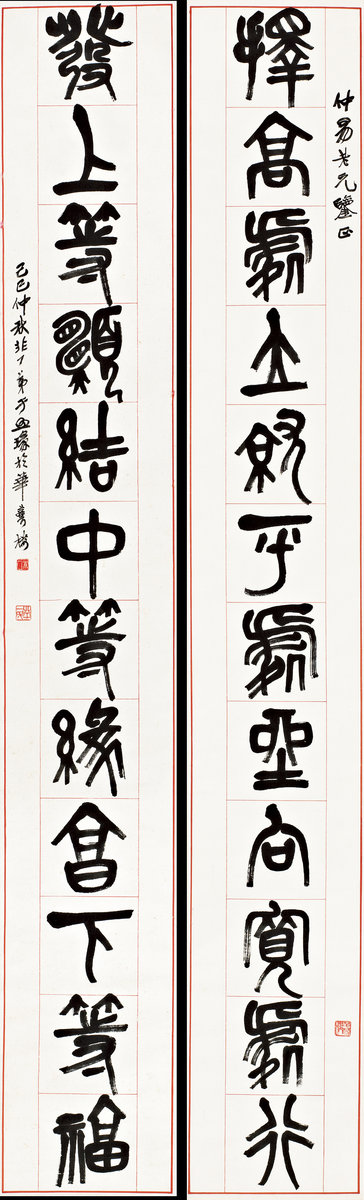 仲易老兄鑒正
擇高處立就平處坐向寬處行
發上等願結中等緣享下等福
己巳仲秋